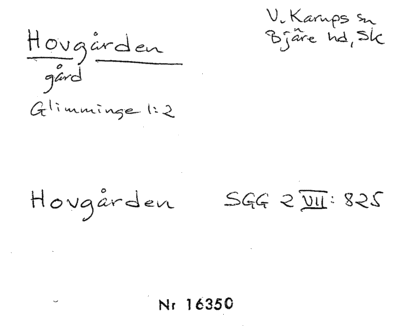 Hovgården
gård
Glimminge 1:2
V. Karups sn
Bjäre hd, Sk
Hovgården SGG 2 VII: 825
Nr 16350